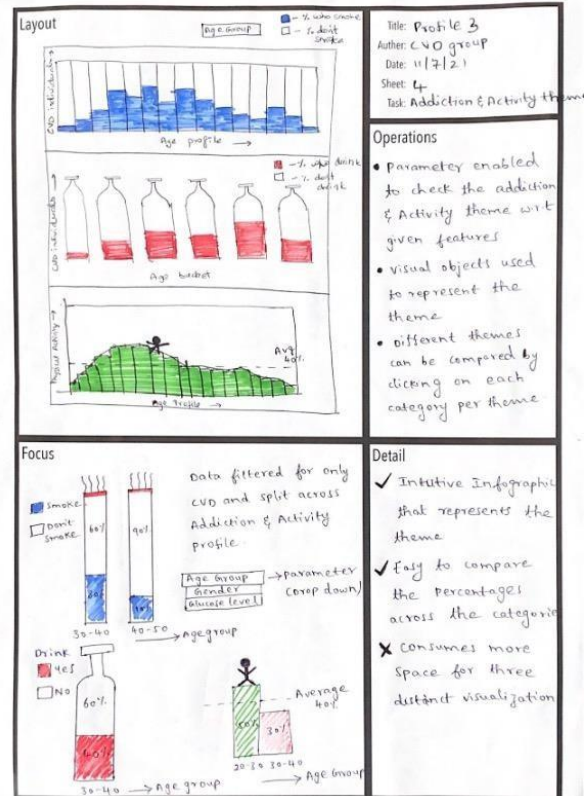 Layout
Age Group
- % who smoke
- % don't smoke
CVD individuals →
Age profile →
- % who drink
- % don't drink
CVD individuals →
Age bucket
Physical Activity →
Avg 40%
Age Profile →
Title: Profile 3
Auther: CVD group
Date: 11/7/21
Sheet: 4
Task: Addiction & Activity theme
Operations
• Parameter enabled
to check the addiction
& Activity theme w.r.t
given features
• visual objects used
to represent the
theme
• Different themes
can be compared by
clicking on each
category per theme.
Focus
Smoke
Don't
smoke
60%
90%
30-40
40-50
→ Age group
Data filtered for only
CVD and split across
Addiction & Activity
profile.
Age Group
Gender
Glucose level
→ Parameter
(drop down)
Drink
Yes
No
60%
40%
30-40 → Age group
Average
40%
30%
20-30 30-40
→ Age Group
Detail
✓ Intuitive Infographic
that represents the
theme
✓ Easy to compare
the percentages
across the categorie
✗ Consumes more
space for three
distinct visualization